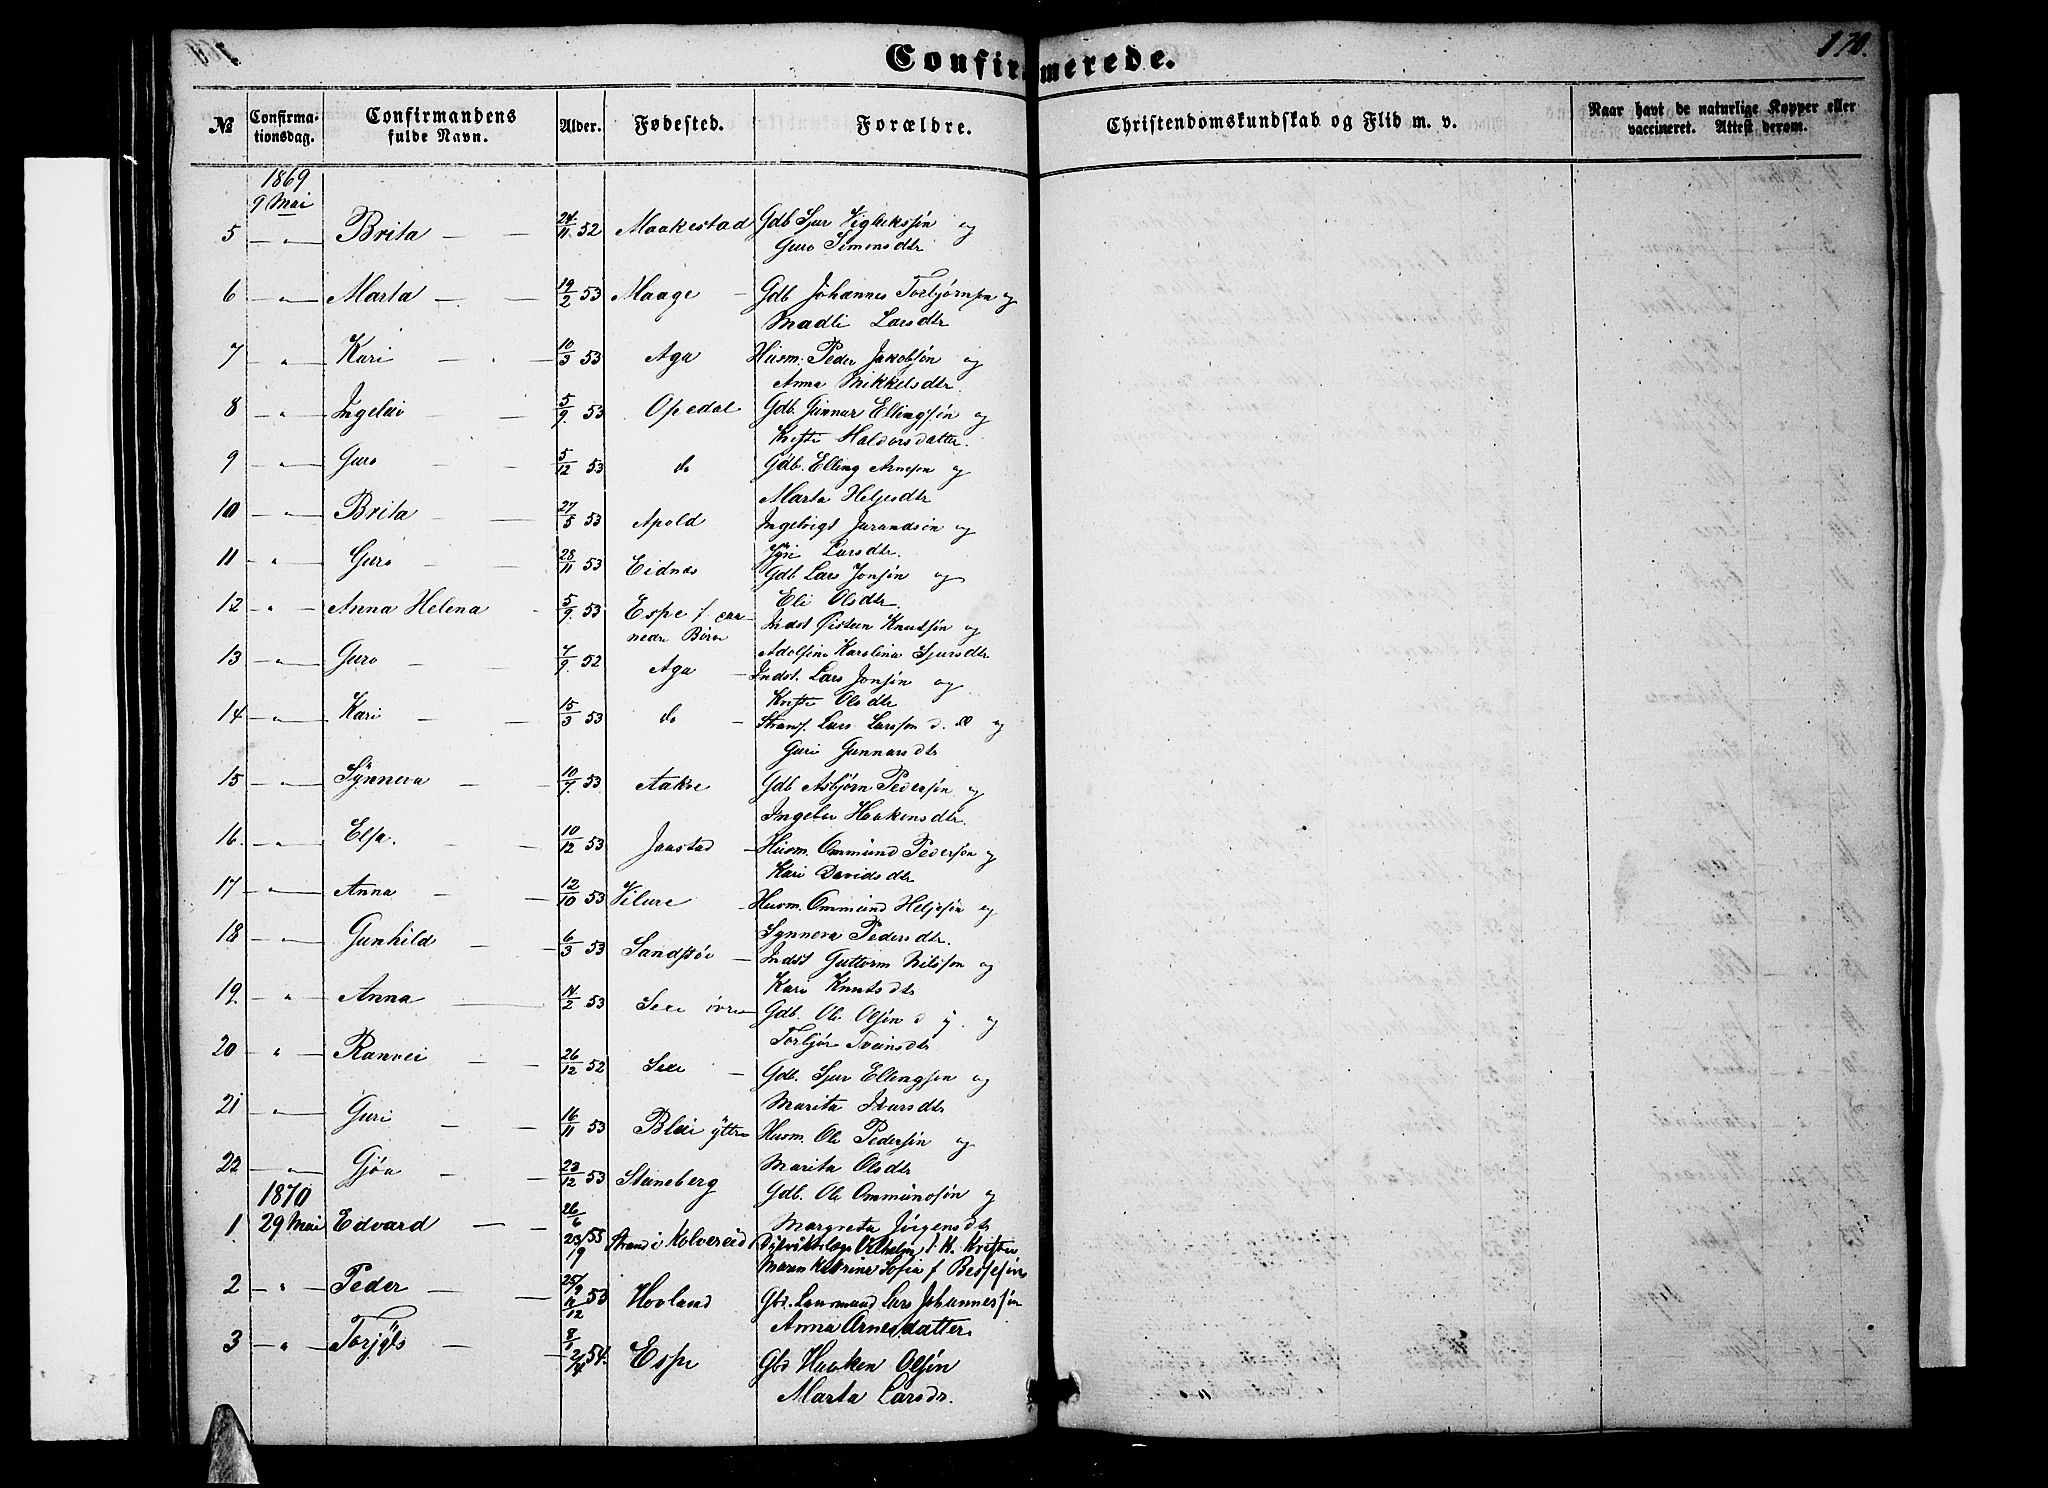 Confirmerede.
170.
№ Confirma-tionsdag. Confirmandens fulde Navn. Alder. Fødested. Forældre. Christendomskundskab og Flid m. v. Naar havt de naturlige Kopper eller vaccineret. Attest derom.
1869
9 Mai
5 — " — Brita — — 24/11 52 Maakestad Gdb Sjur Vigleiksøn og
Guro Simonsdtr
6 — " — Marta — — 19/2 53 Maage — Gdb Johannes Torbjørnsøn og
Madli Larsdtr
7 " — Kari — — 10/3 53 Aga Husm. Peder Jakobsøn og
Anna Mikkelsdtr
8 — " — Ingelei — — 5/9 53 Opedal Gdb. Gunnar Ellingsøn og
Kristi Haldorsdatter.
9 — " — Guro — — 5/12 53 do Gdb. Elling Arneson og
Marta Heljesdtr
10 — " — Brita — — 27/5 53 Apold Ingebrigt Jurandsøn og
Syni Larsdtr.
11 " — Guro — — 28/11 53 Eidnes Gdb Lars Jonsøn og
Eli Olsdtr.
12 — " — Anna Helena 5/9 53 Espe f
nedre Børve Indst Øistein Knutsøn og
Adolfine Karolina Sjursdtr
13 — " — Guro — — 7/9 52 Aga — Indst. Lars Jonsøn og
Kristi Olsdtr
14 — " — Kari — — 15/3 53 do — Lars Larsson d. æ og
Guri Gunnarsdtr
15 — " — Synneva — — 10/7 53 Aakre Gdb Asbjørn Pedersøn og
Ingebor Haakensdtr.
16. — " — Elsa. — — 10/12 53 Jaastad — Husm. Ommund Pedersøn og
Kari Davidsdtr
17 — " — Anna — — 12/10 53 Vilure — Husm. Ommund Heljesøn og
Synneva Pedersdtr.
18 — " — Gunhild — — 6/3 53 Sandstø — Indst Guttorm Nilsson og
Kari Knutsdtr
19. — " — Anna — 14/2 53 Sexe øvre Gdb. Ole Olsøn d y. og
Torbjør Sveinsdtr
20 — " — Ranvei — — 26/12 52 Sexe — Gdb. Sjur Ellingsøn og
Marita Ivarsdtr
21 — " — Guri — — 16/11 53 Bleie yttre Husm. Ole Pedersøn og
Marita Olsdtr
22 — " — Gjøa — — 23/12 53 Steineberg Gdb. Ole Ommundsøn og
Margreta Jørgensdtr
1870
1 29 Mai Edvard — — 26/6 55 23/19 Strand i Kolvereid Distriktslæge Vilhelm f. K.
Maren Katrine Sofia f
2 " — Peder — — 53 Hovland Gbr. Lensmand Lars Johannessøn
Anna Arnesdatter.
3 — " — Torjyls — — 54. Espe Gbr Haaken Olsøn
Marta Larsdr.